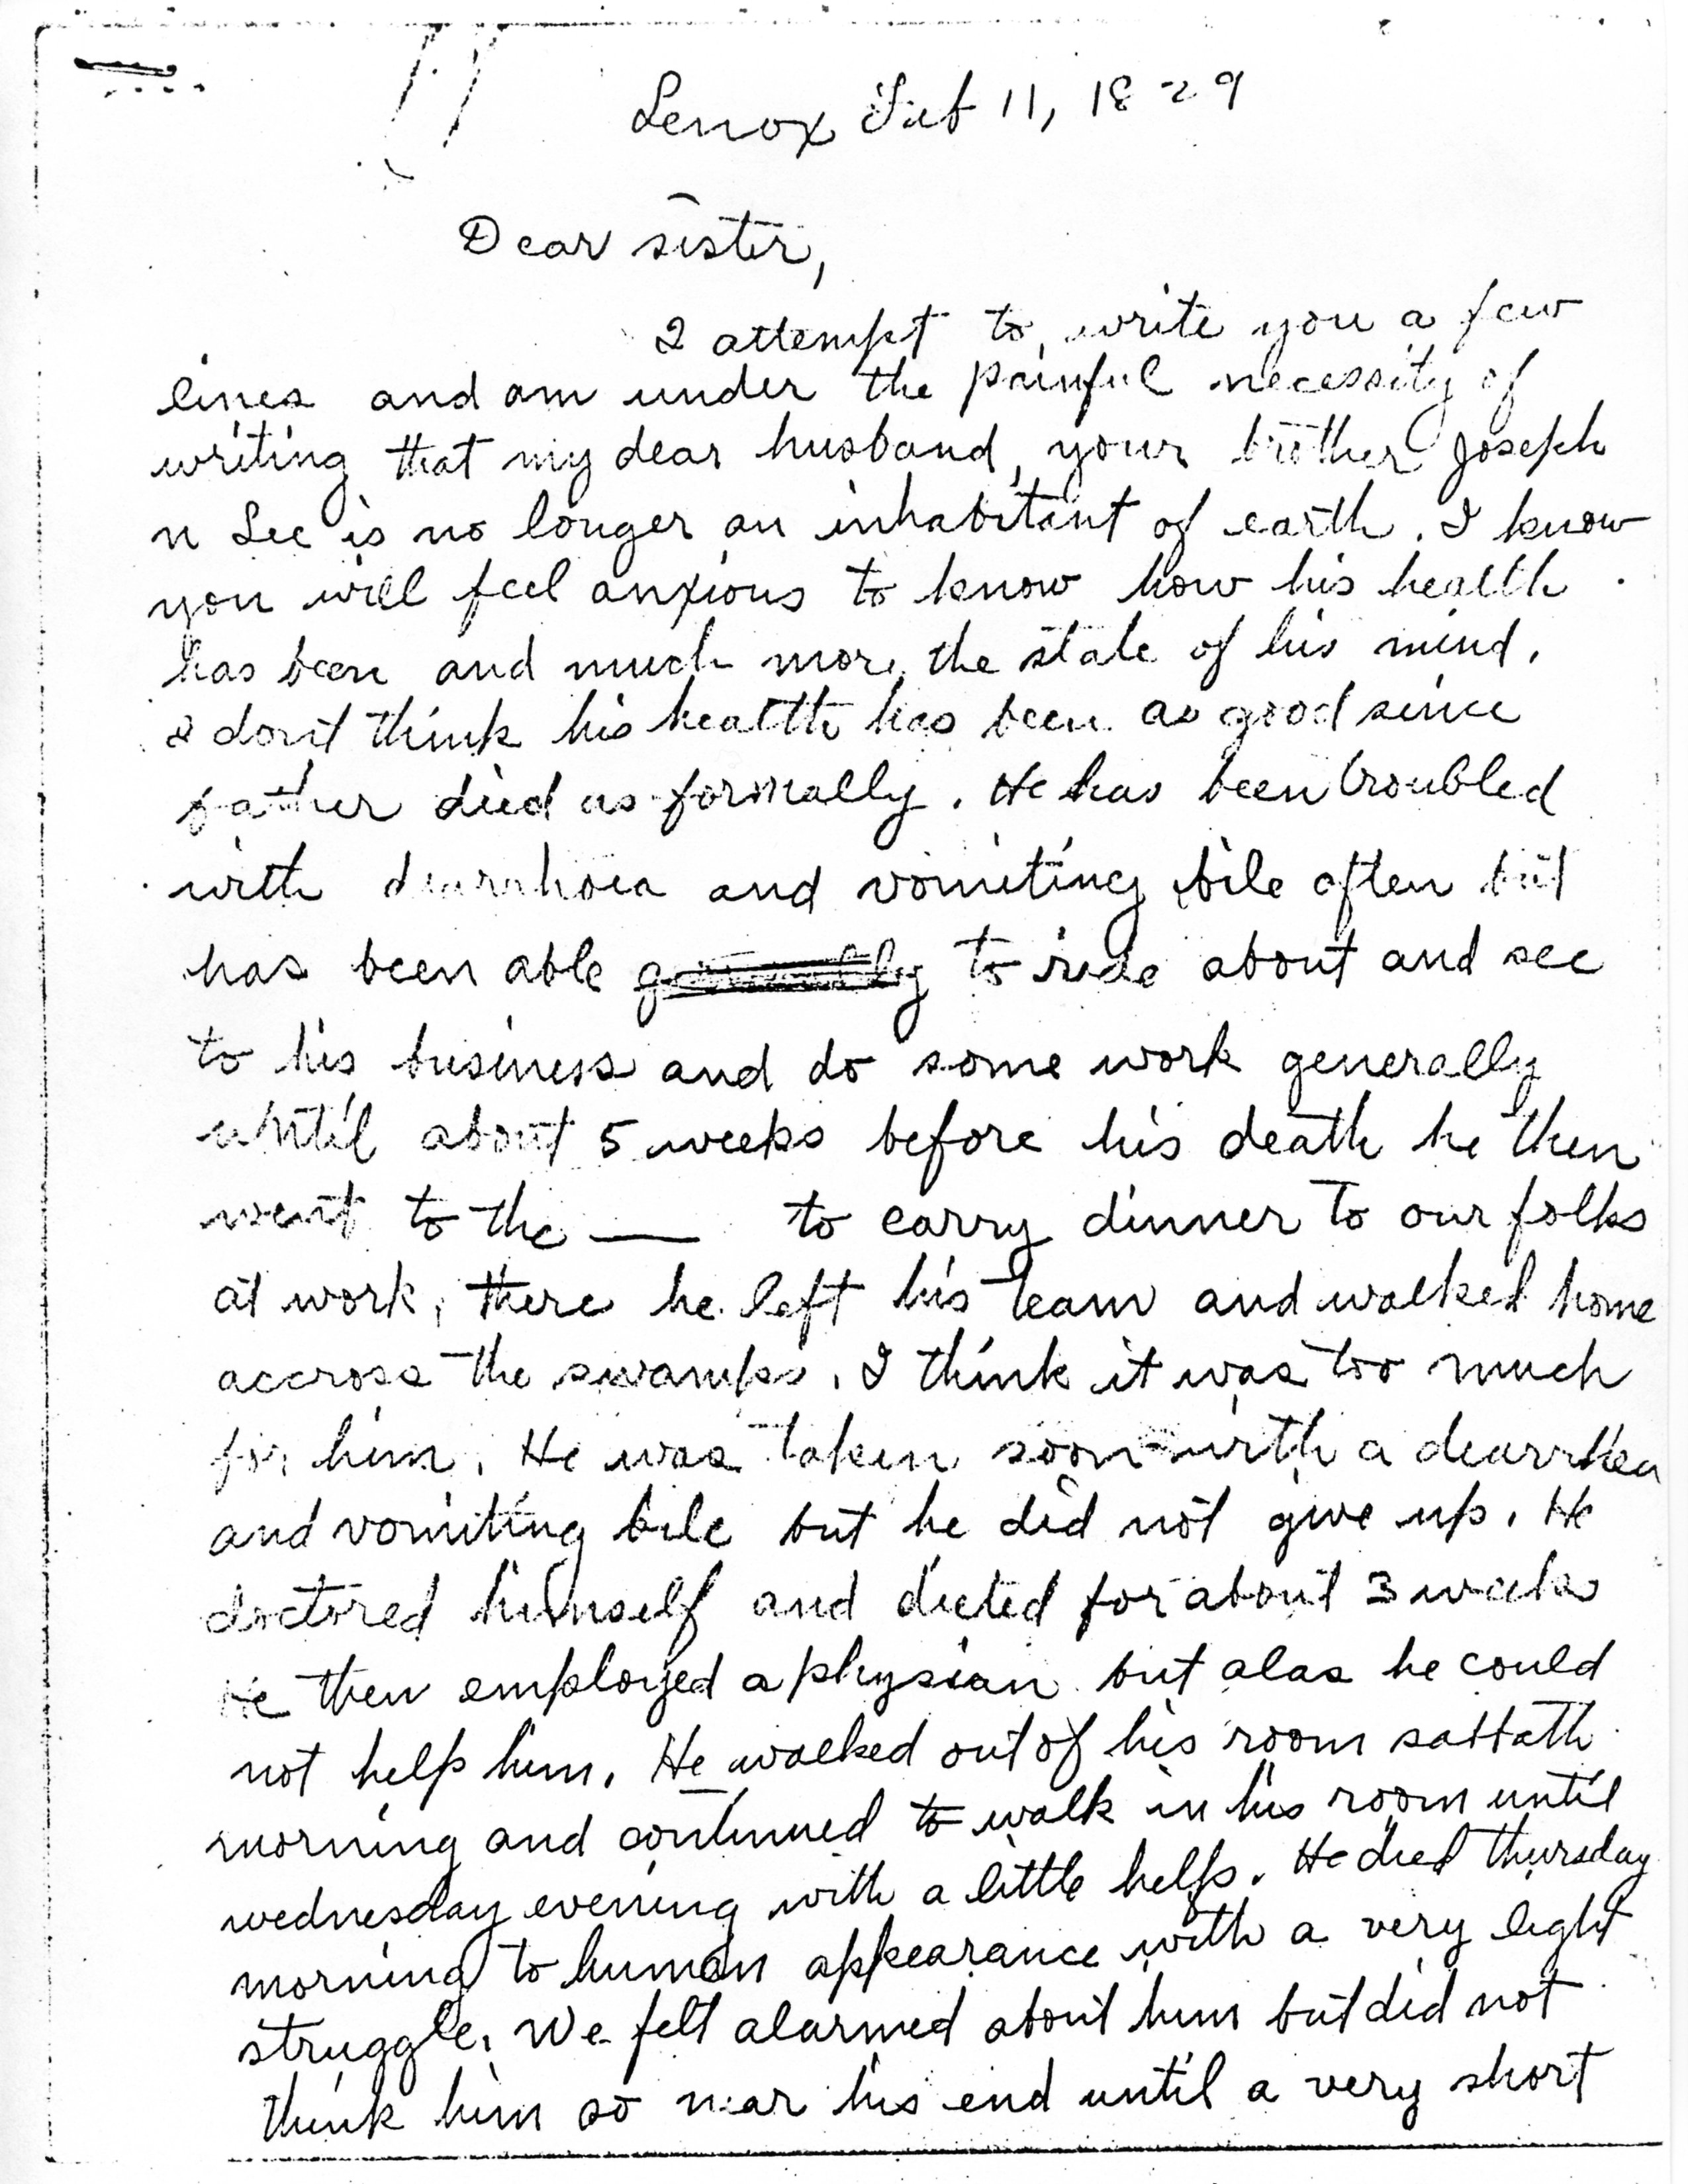 Lenox Feb 11, 1829
Dear sister,
I attempt to write you a few
lines and am under the painful necessity of
writing that my dear husband, your brother Joseph
n Lee is no longer an inhabitant of earth. I know
you will feel anxious to know how his health
has been and much more the state of his mind.
I don't think his health has been as good since
father died as formally. He has been troubled
with diarrhoea and vomiting bile often but
has been able to ride about and see
to his business and do some work generally
until about 5 weeks before his death he then
went to the — to carry dinner to our folks
at work, there he left his team and walked home
accross the swamps. I think it was too much
for him. He was taken soon with a diarrhea
and vomiting bile but he did not give up. He
doctored himself and dieted for about 3 weeks
He then employed a physian but alas he could
not help him. He walked out of his room sabbath
morning and continued to walk in his room until
wednesday evening with a little help. He died thursday
morning to human appearance with a very light
struggle. We felt alarmed about him but did not
think him so near his end until a very short